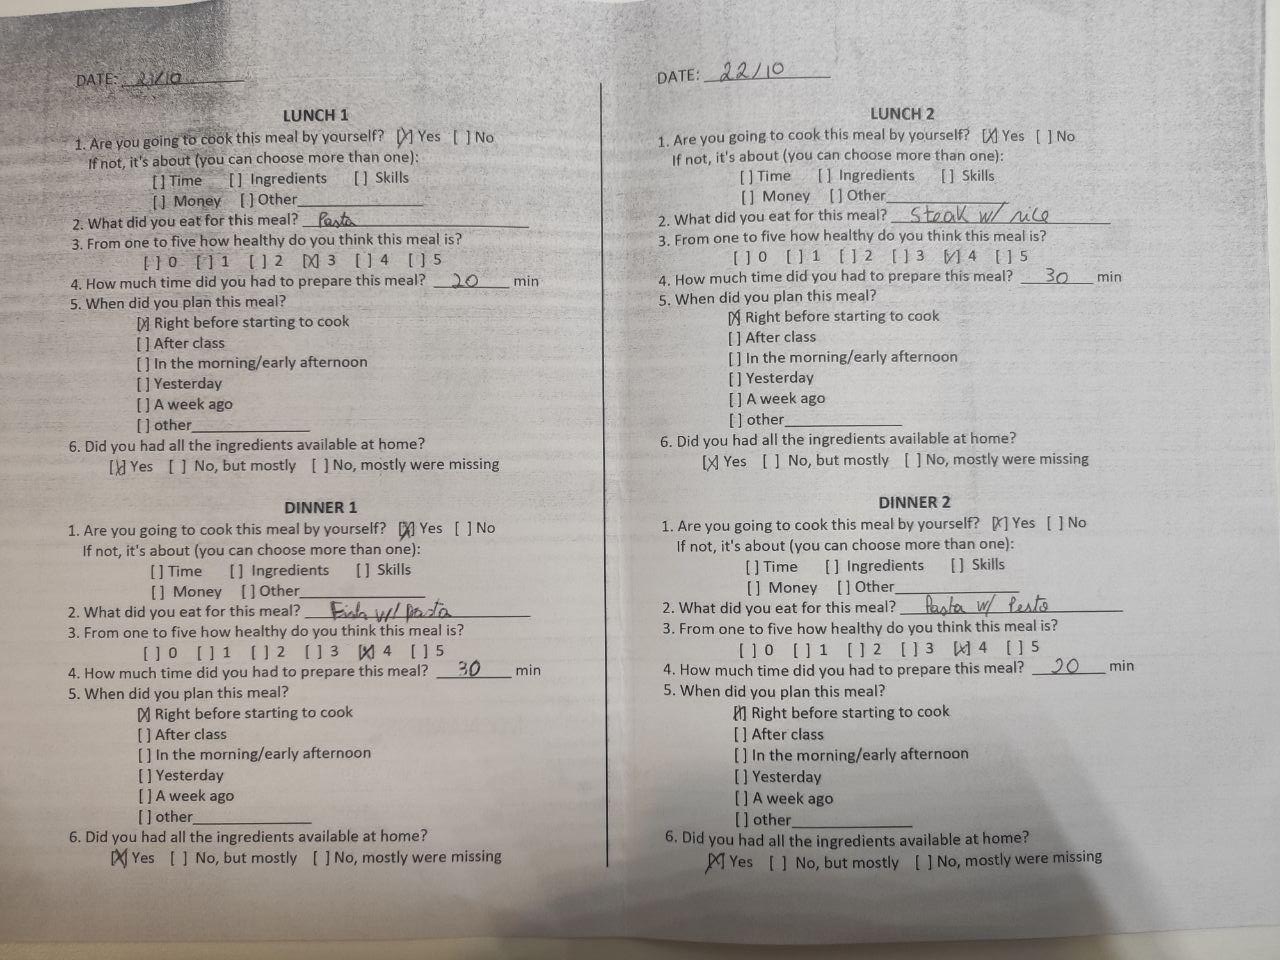 DATE: 21/10
LUNCH 1
1. Are you going to cook this meal by yourself? [X] Yes [ ] No
If not, it's about (you can choose more than one):
[ ] Time [ ] Ingredients [ ] Skills
[ ] Money [ ] Other
2. What did you eat for this meal? Pasta
3. From one to five how healthy do you think this meal is?
[ ] 0 [ ] 1 [ ] 2 [X] 3 [ ] 4 [ ] 5
4. How much time did you had to prepare this meal? 20 min
5. When did you plan this meal?
[X] Right before starting to cook
[ ] After class
[ ] In the morning/early afternoon
[ ] Yesterday
[ ] A week ago
[ ] other
6. Did you had all the ingredients available at home?
[X] Yes [ ] No, but mostly [ ] No, mostly were missing
DINNER 1
1. Are you going to cook this meal by yourself? [X] Yes [ ] No
If not, it's about (you can choose more than one):
[ ] Time [ ] Ingredients [ ] Skills
[ ] Money [ ] Other
2. What did you eat for this meal? Fish w/ pasta
3. From one to five how healthy do you think this meal is?
[ ] 0 [ ] 1 [ ] 2 [ ] 3 [X] 4 [ ] 5
4. How much time did you had to prepare this meal? 30 min
5. When did you plan this meal?
[X] Right before starting to cook
[ ] After class
[ ] In the morning/early afternoon
[ ] Yesterday
[ ] A week ago
[ ] other
6. Did you had all the ingredients available at home?
[X] Yes [ ] No, but mostly [ ] No, mostly were missing
DATE: 22/10
LUNCH 2
1. Are you going to cook this meal by yourself? [X] Yes [ ] No
If not, it's about (you can choose more than one):
[ ] Time [ ] Ingredients [ ] Skills
[ ] Money [ ] Other
2. What did you eat for this meal? Steak w/ rice
3. From one to five how healthy do you think this meal is?
[ ] 0 [ ] 1 [ ] 2 [ ] 3 [X] 4 [ ] 5
4. How much time did you had to prepare this meal? 30 min
5. When did you plan this meal?
[X] Right before starting to cook
[ ] After class
[ ] In the morning/early afternoon
[ ] Yesterday
[ ] A week ago
[ ] other
6. Did you had all the ingredients available at home?
[X] Yes [ ] No, but mostly [ ] No, mostly were missing
DINNER 2
1. Are you going to cook this meal by yourself? [X] Yes [ ] No
If not, it's about (you can choose more than one):
[ ] Time [ ] Ingredients [ ] Skills
[ ] Money [ ] Other
2. What did you eat for this meal? Pasta w/ Pesto
3. From one to five how healthy do you think this meal is?
[ ] 0 [ ] 1 [ ] 2 [ ] 3 [X] 4 [ ] 5
4. How much time did you had to prepare this meal? 20 min
5. When did you plan this meal?
[X] Right before starting to cook
[ ] After class
[ ] In the morning/early afternoon
[ ] Yesterday
[ ] A week ago
[ ] other
6. Did you had all the ingredients available at home?
[X] Yes [ ] No, but mostly [ ] No, mostly were missing